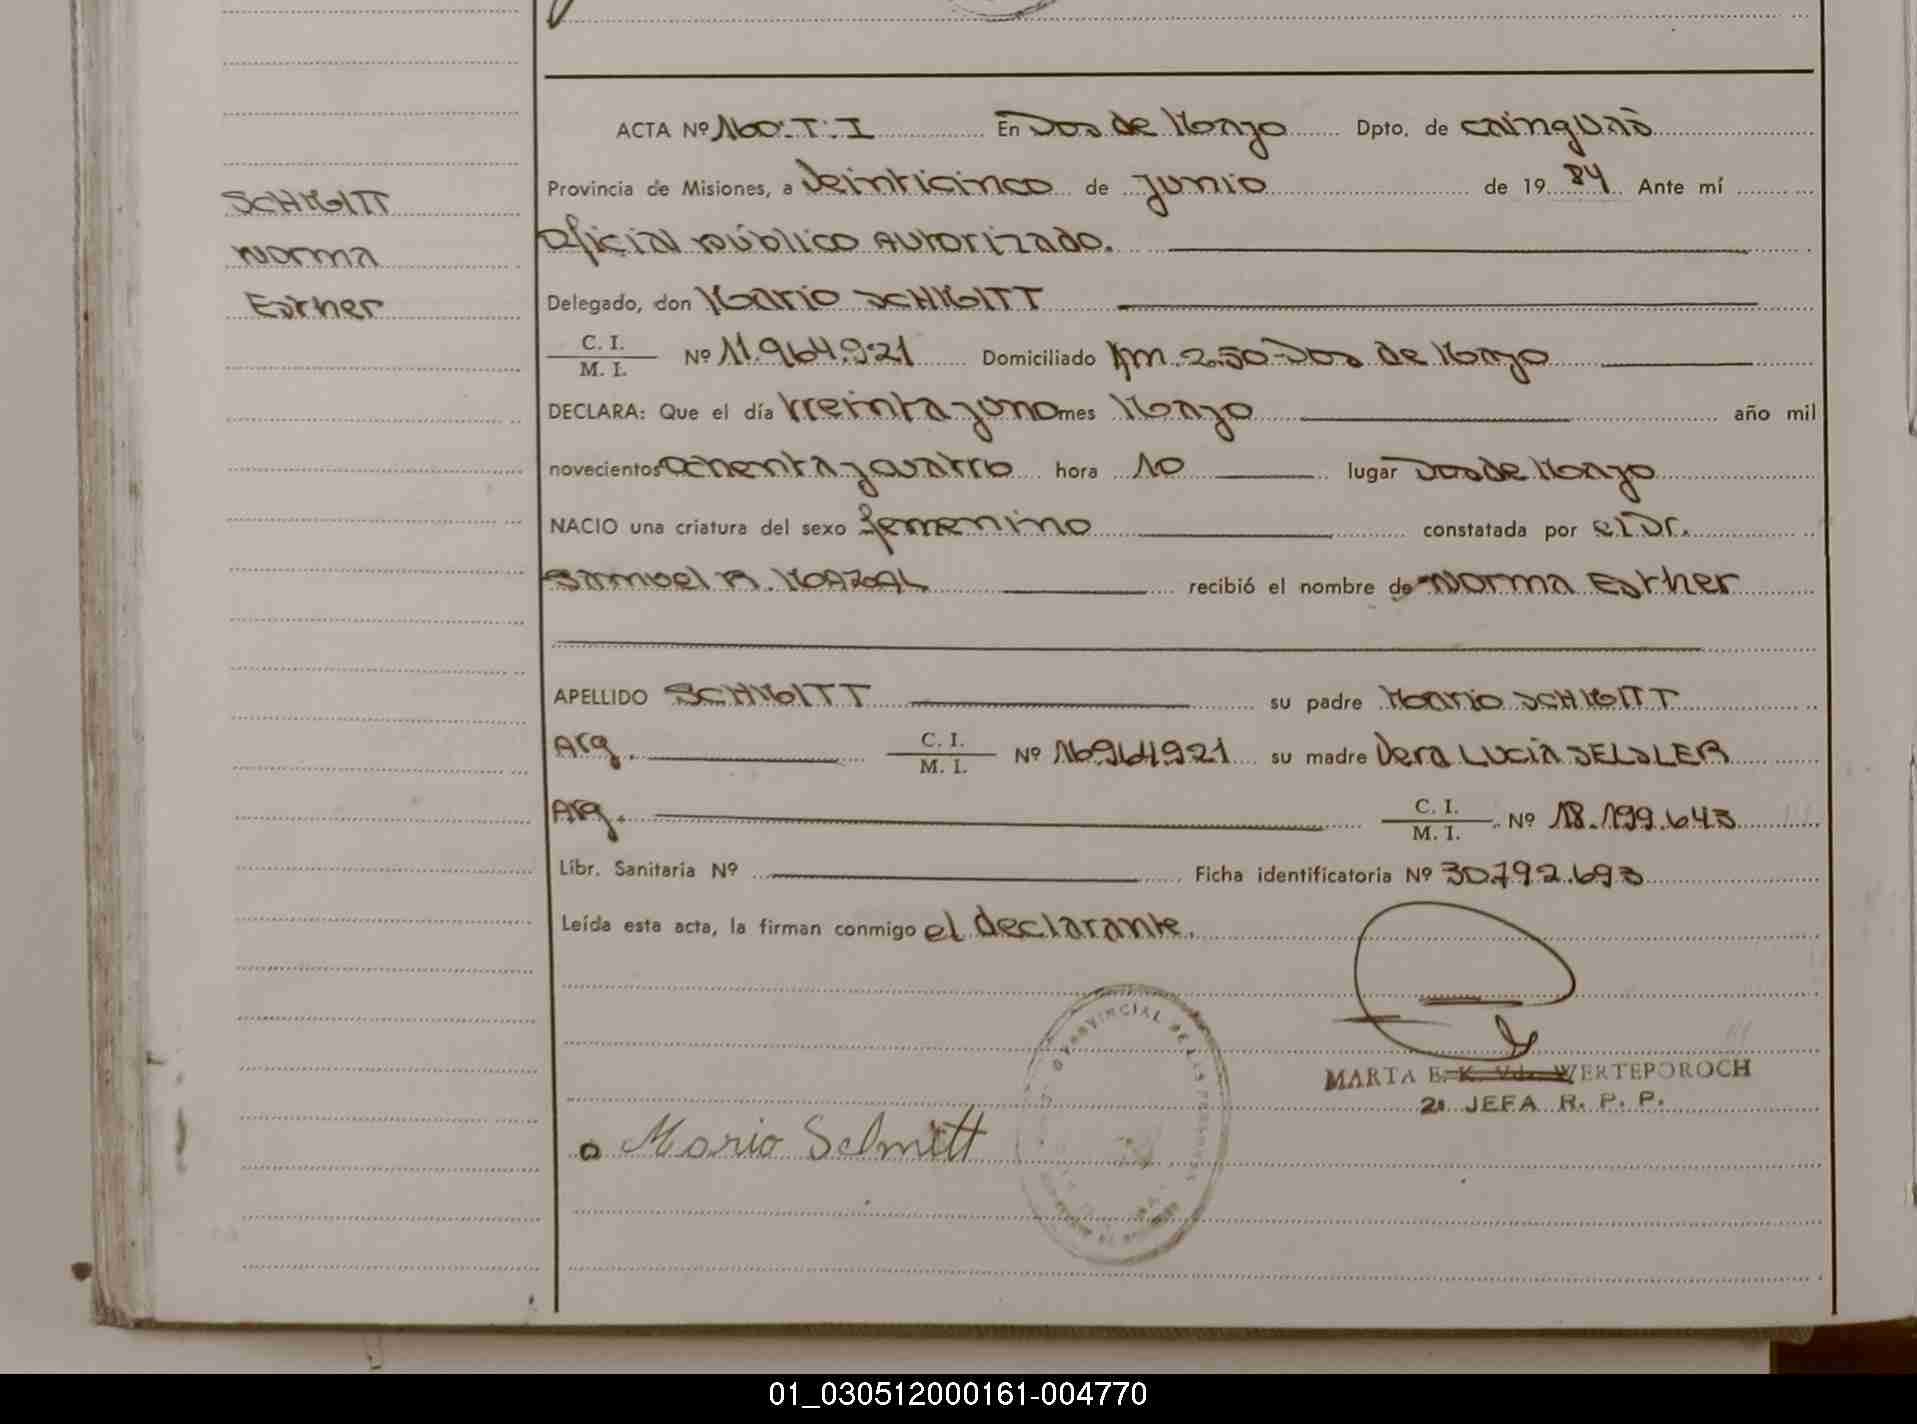 ACTA Nº 160:T:I En Dos de Mayo Dpto. de cainguás
Provincia de Misiones, a Veinticinco de junio de 19 84 Ante mí
SCHMITT
Oficial público Autorizado.
Norma
Esther
Delegado, don Mario SCHMITT
C. I.
M. I. Nº 11.964.921 Domiciliado Km. 250-Dos de Mayo
DECLARA: Que el día treinta y uno mes Mayo año mil
novecientos ochenta y cuatro hora 10 lugar Dos de Mayo
NACIO una criatura del sexo femenino constatada por el Dr.
Samuel R. recibió el nombre de Norma Esther
APELLIDO SCHMITT su padre Mario SCHMITT
Arg. C. I.
M. I. Nº 16964921 su madre Vera LUCIA SEISLER
Arg. C. I.
M. I. Nº 18.199.643
Libr. Sanitaria Nº Ficha identificatoria Nº 30.792.693
Leída esta acta, la firman conmigo el declarante.
PROVINCIAL DE LAS PERSONAS
MARTA E. K. Vda. WERTEPOROCH
2ª JEFA R. P. P.
Mario Schmitt
01_030512000161-004770